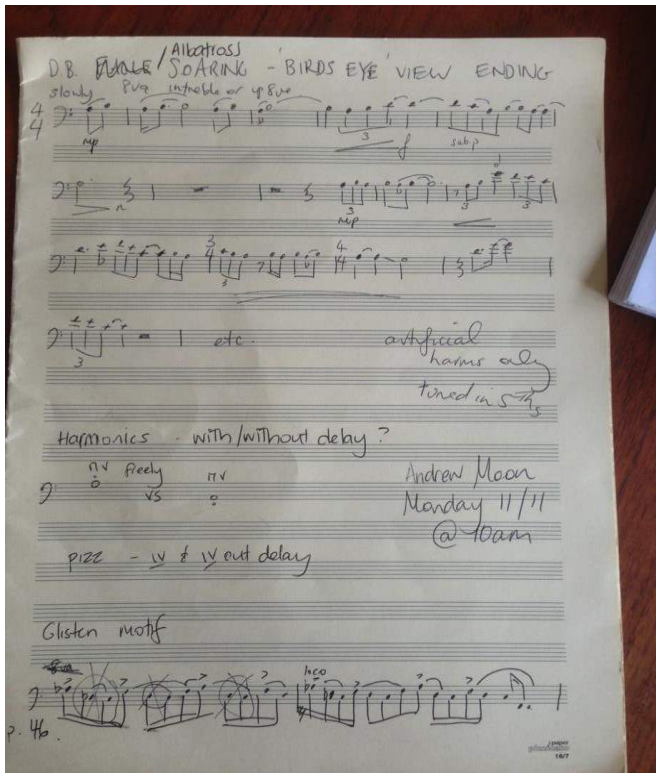 Albatross
D.B. / SOARING - 'BIRDS EYE' VIEW ENDING
slowly 8va in treble or up 8ve
4
4
mp 3 f sub.p
n 3 mp 3 3
3
4 3 4
4 3
3 etc. artificial
harms only
tuned in 5ths
Harmonics - with/without delay?
freely
VS
Andrew Moon
Monday 11/11
@ 10am
pizz - &  delay
Glisten motif
loco
p. 46.
16/7